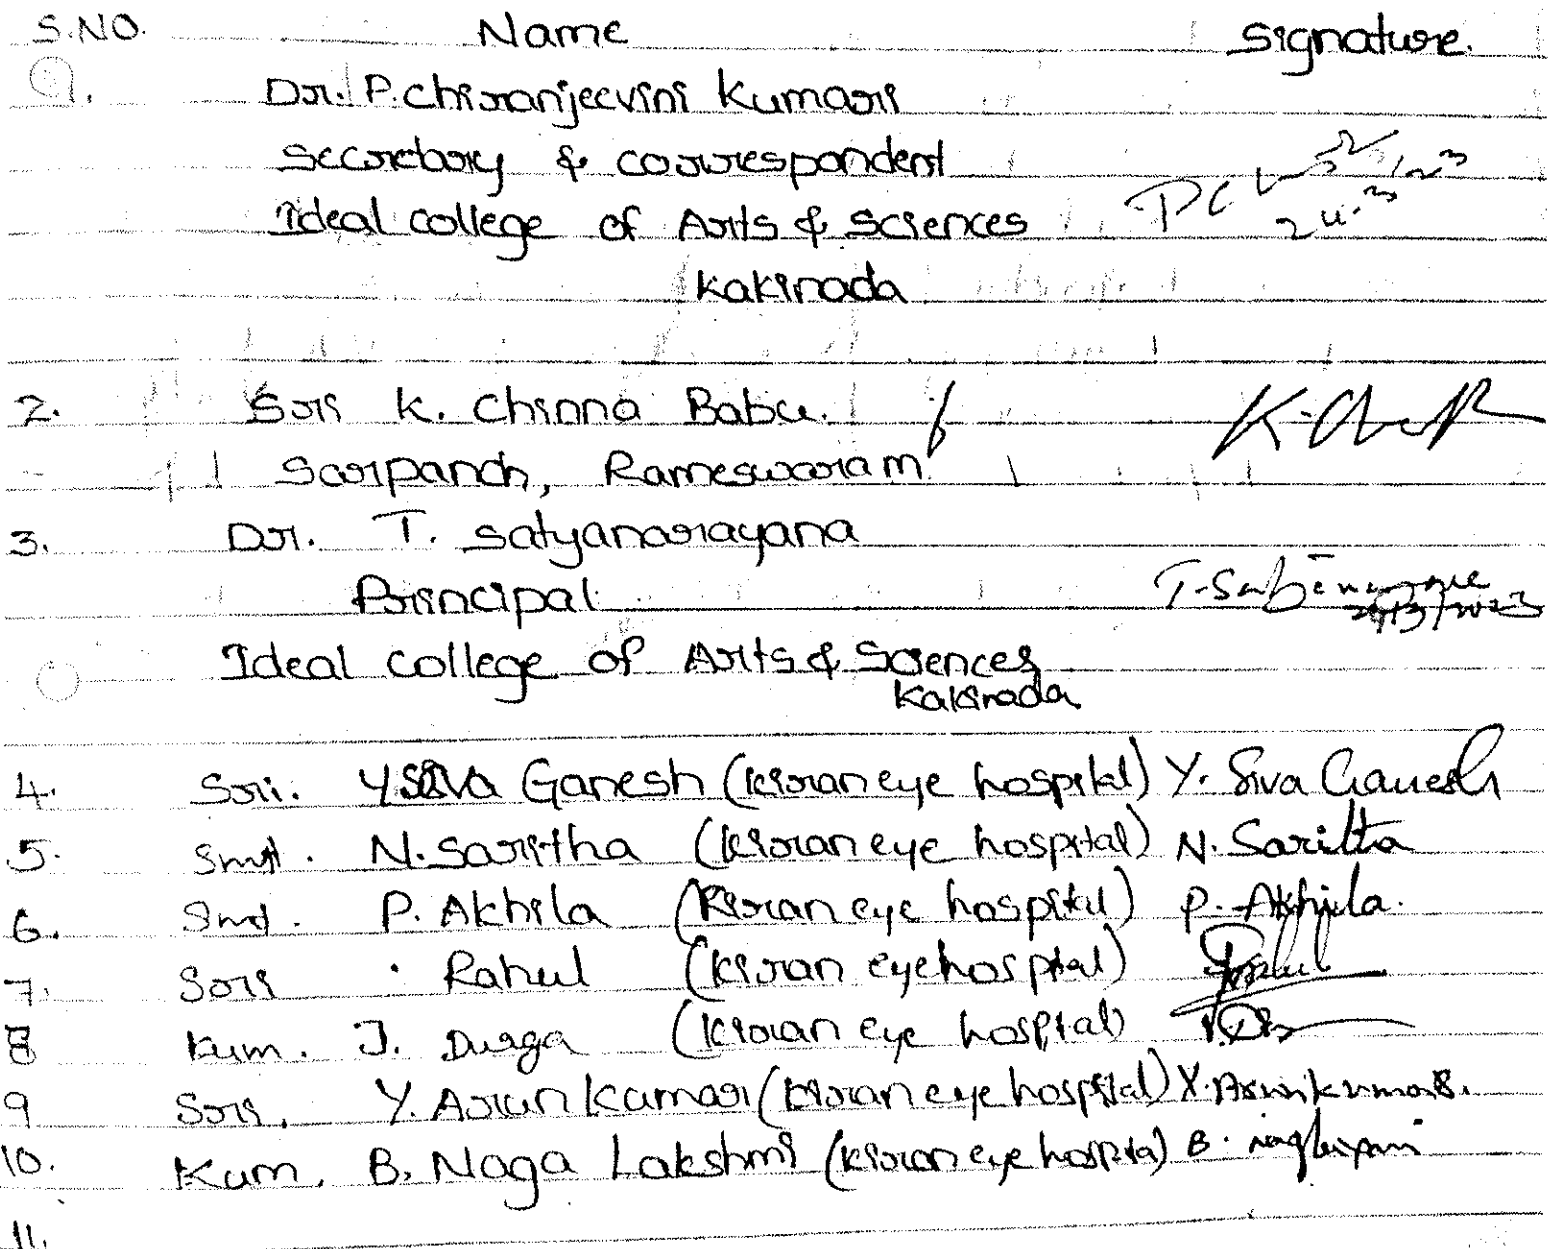 S.NO. Name Signature.
1. Dr. P. Chiranjeevini Kumari
Secretary & correspondent
Ideal college of Arts & Sciences
Kakinada
2. Sri K. Chinna Babu.
Sarpanch, Rameswaram
3. Dr. T. Satyanarayana
Principal
Ideal college of Arts & Sciences
Kakinada
4. Sri. Y Siva Ganesh (kiran eye hospital) Y. Siva Ganesh
5. Smt. N. Saritha (kiran eye hospital) N. Saritha
6. Smt. P. Akhila (Kiran eye hospital) P. Akhila.
7. Sri . Rahul (kiran eye hospital)
8 kum. J. Durga (kiran eye hospital)
9 Sri. Y. Arun Kumar (kiran eye hospital) Y. Arun kumar.
10. Kum. B. Naga Lakshmi (kiran eye hospital)
11.